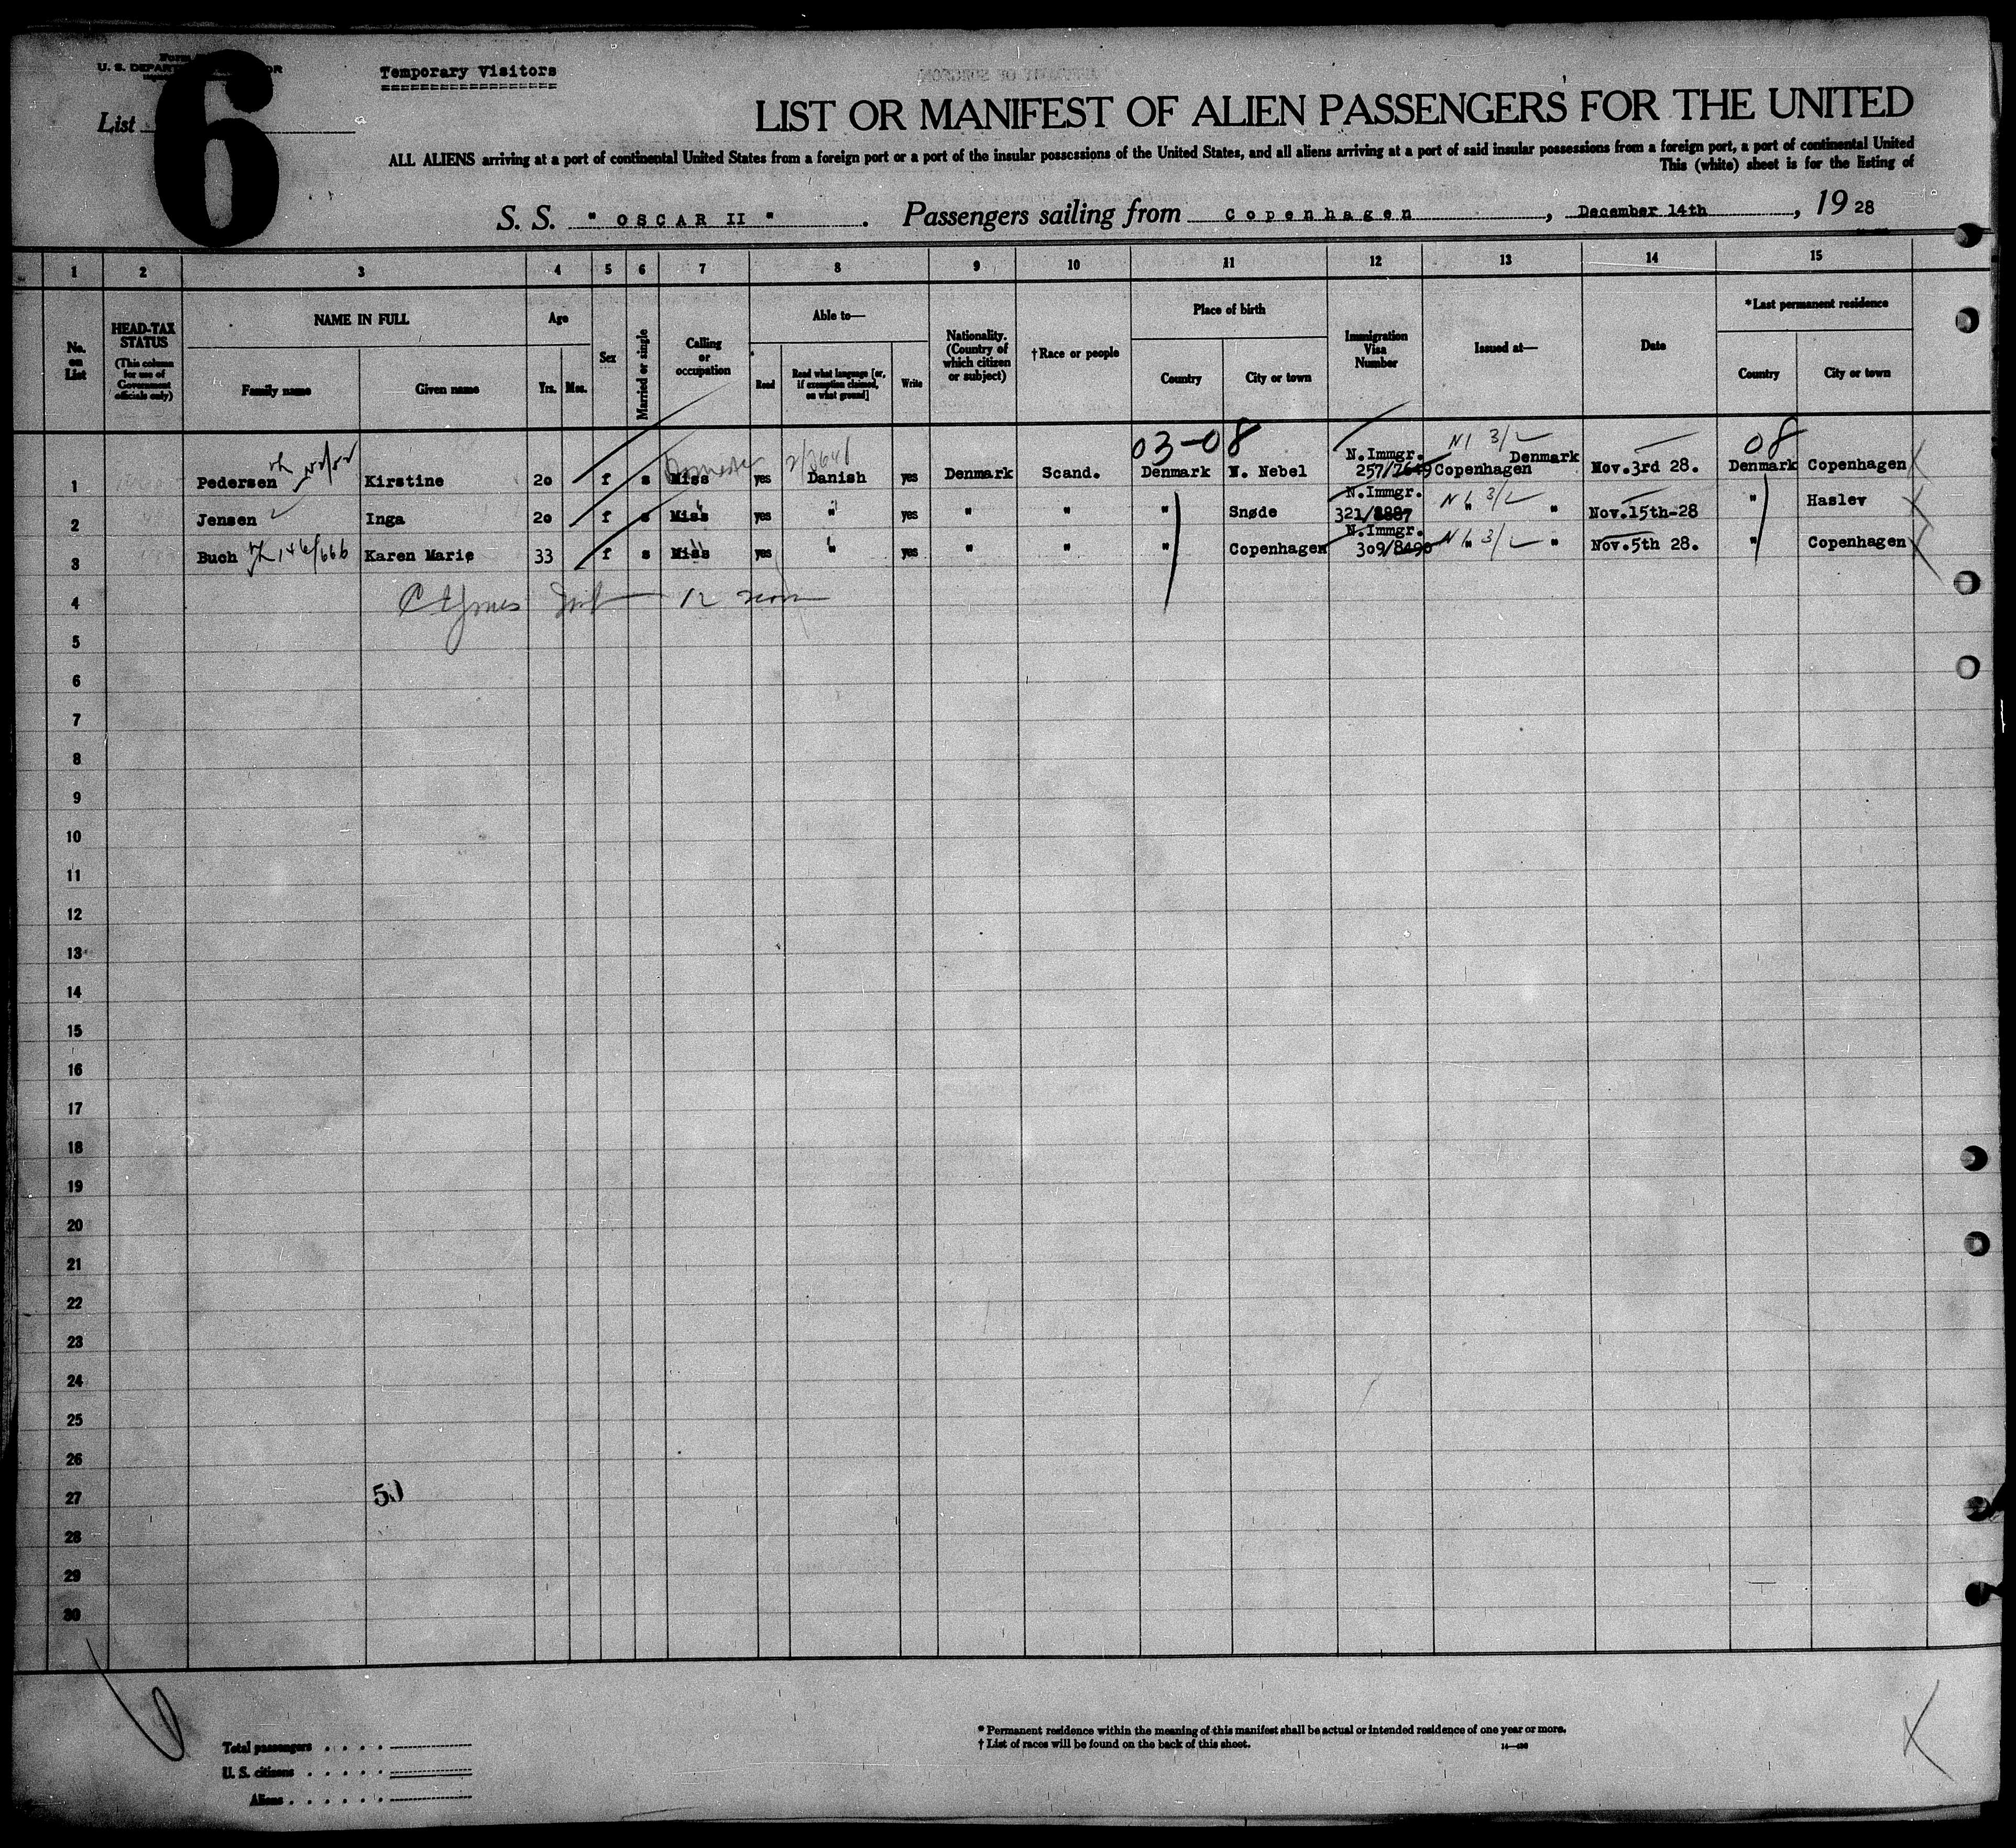 U. S. DEPART
Temporary Visitors
List
6
LIST OR MANIFEST OF ALIEN PASSENGERS FOR THE UNITED
ALL ALIENS arriving at a port of continental United States from a foreign port or a port of the insular possessions of the United States, and all aliens arriving at a port of said insular possessions from a foreign port, a port of continental United
This (white) sheet is for the listing of
S. S. " OSCAR II ". Passengers sailing from Copenhagen, December 14th, 19 28
1 2 3 4 5 6 7 8 9 10 11 12 13 14 15
No. on List
HEAD-TAX STATUS (This column for use of Government officials only)
NAME IN FULL
Family name
Given name
Age
Yrs. Mos.
Sex
Married or single
Calling or occupation
Able to—
Read
Read what language [or, if exemption claimed, on what ground]
Write
Nationality. (Country of which citizen or subject)
†Race or people
Place of birth
Country
City or town
Immigration Visa Number
Issued at—
Date
*Last permanent residence
Country
City or town
03-08 08
1 Pedersen Kirstine 20 f s Miss yes Danish yes Denmark Scand. Denmark N. Nebel N.Immgr. 257/7649 Copenhagen Denmark Nov.3rd 28. Denmark Copenhagen
2 Jensen Inga 20 f s Miss yes " yes " " " Snøde N.Immgr. 321/8887 " " Nov.15th-28 " Haslev
3 Buch 146/666 Karen Marie 33 f s Miss yes " yes " " " Copenhagen N.Immgr. 309/8490 " " Nov.5th 28. " Copenhagen
4
5
6
7
8
9
10
11
12
13
14
15
16
17
18
19
20
21
22
23
24
25
26
27
28
29
30
Total passengers
U. S. citizens
Aliens
* Permanent residence within the meaning of this manifest shall be actual or intended residence of one year or more.
† List of races will be found on the back of this sheet.